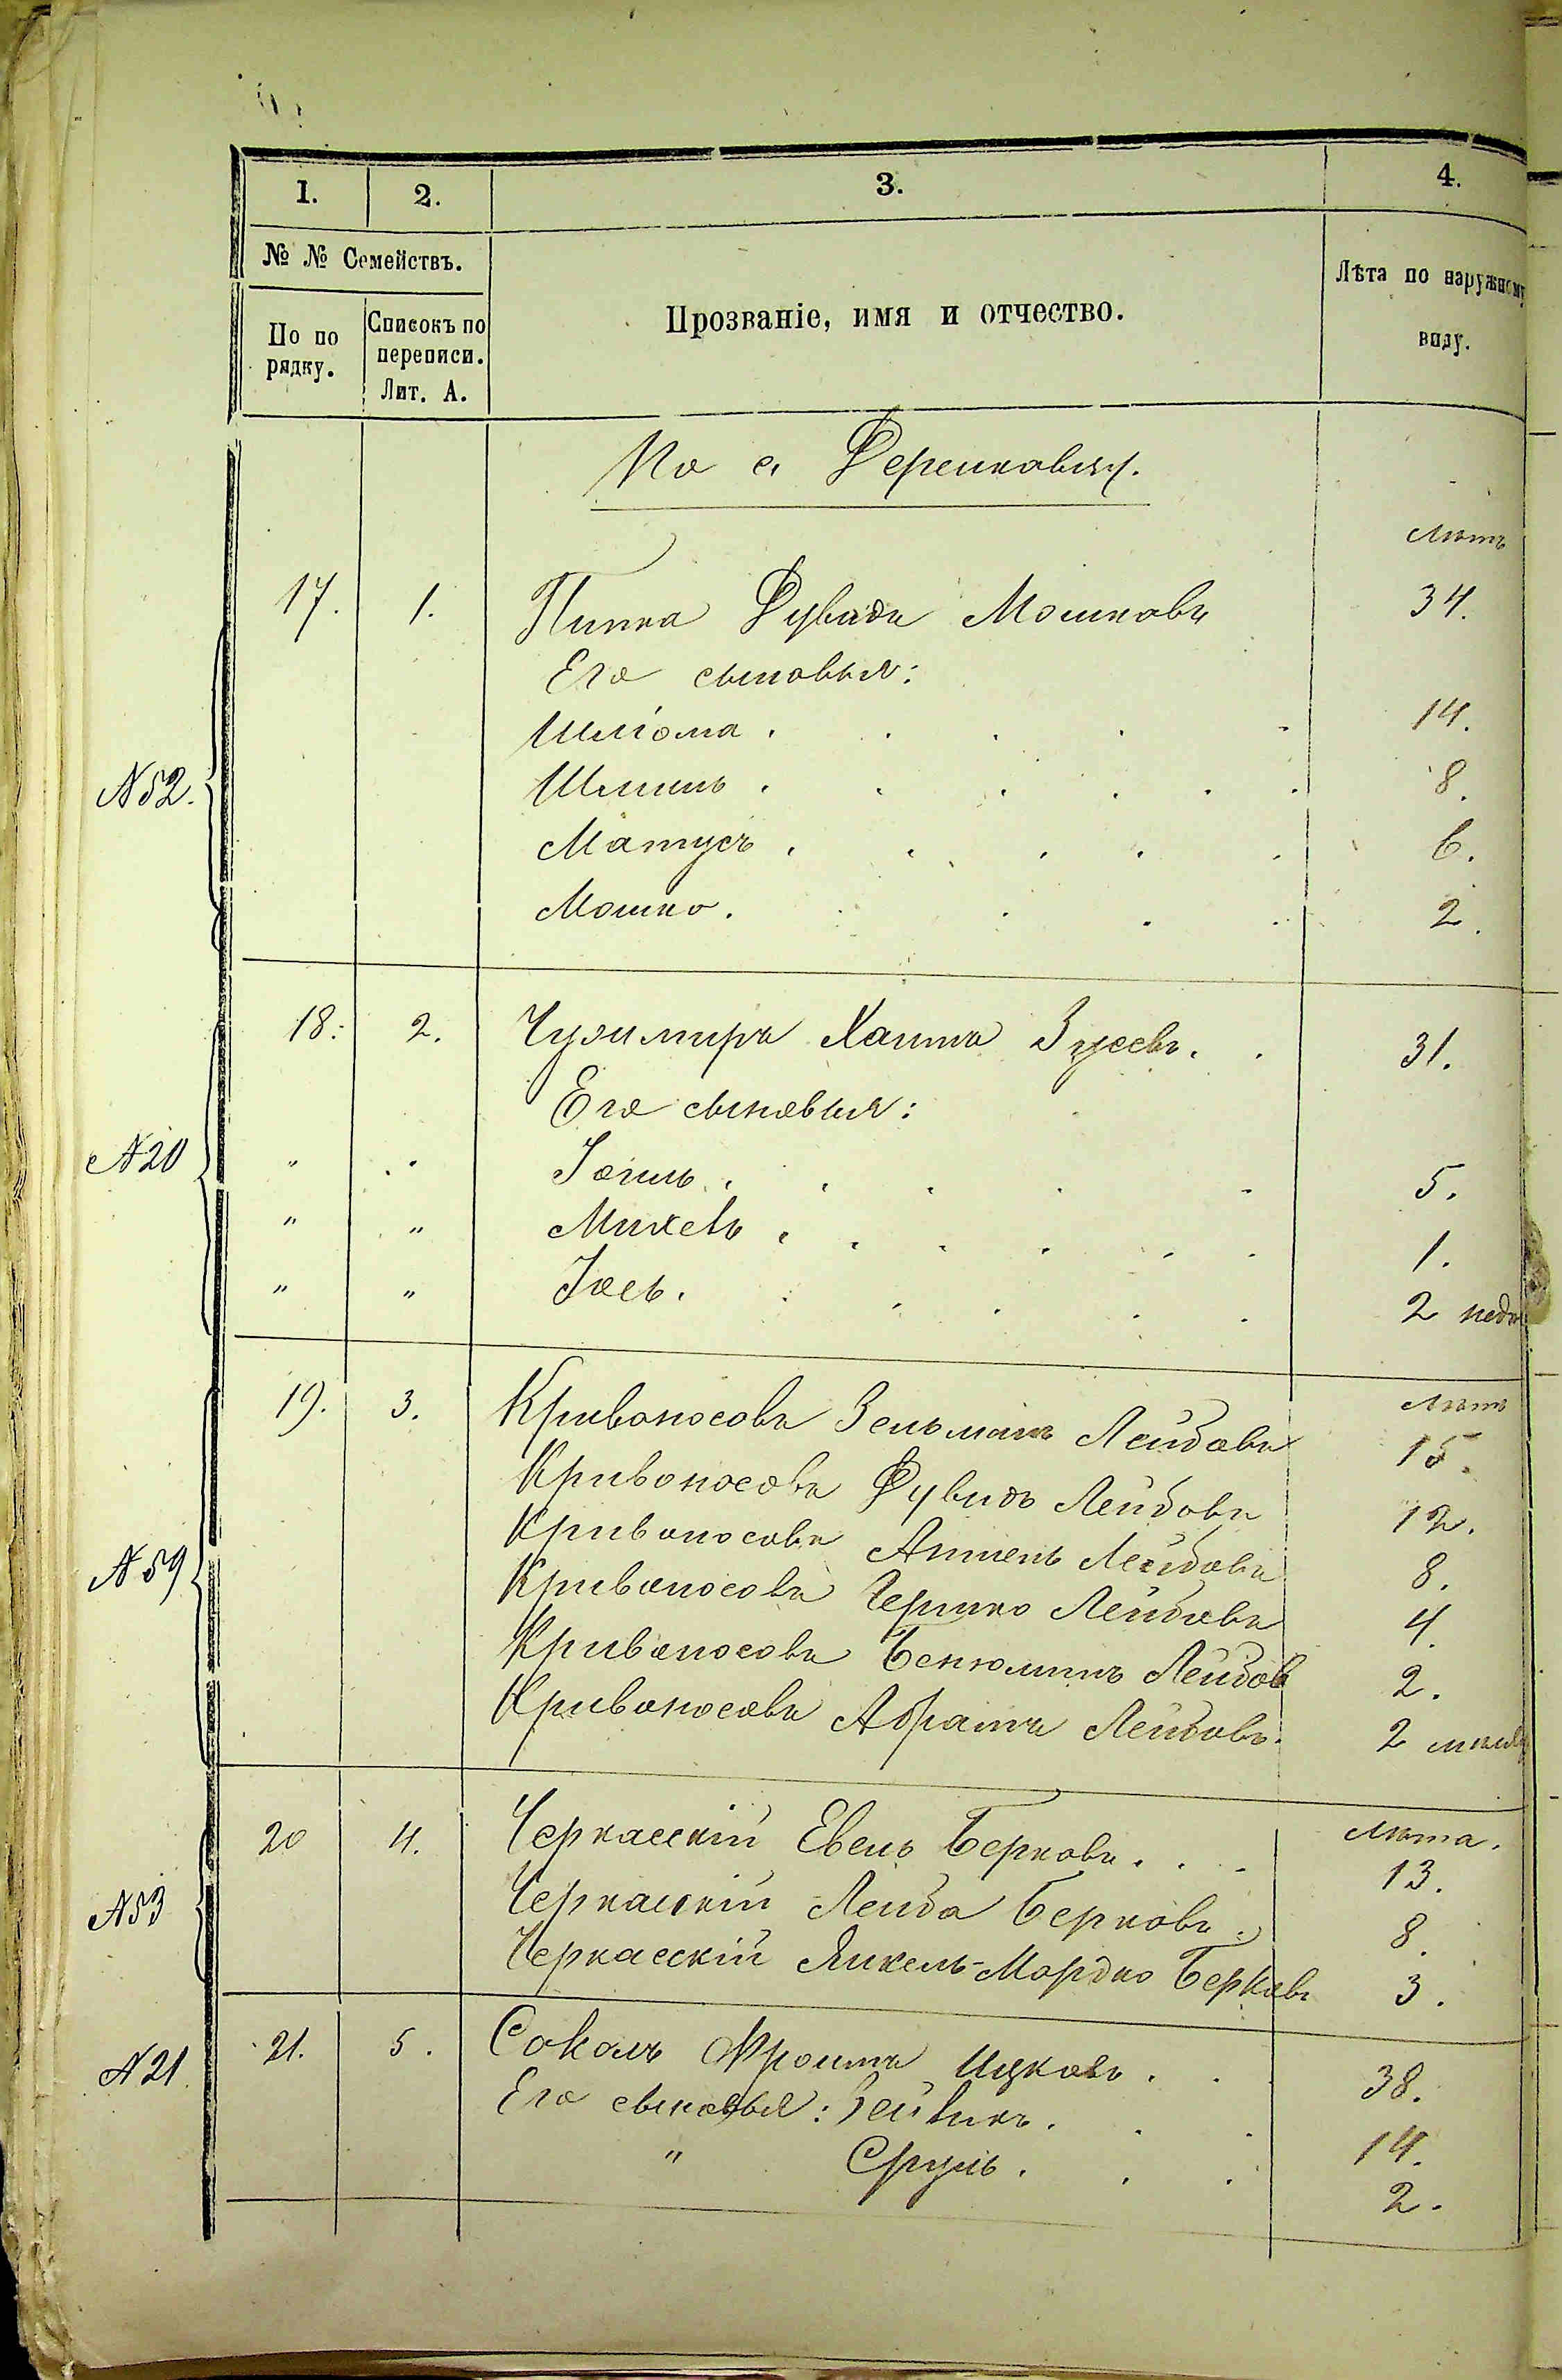 1. 2. 3. 4.
№ № Семействъ. Прозваніе, имя и отчество. Лѣта по наружному виду.
По порядку. Списокъ по переписи. Лит. А.
По с. Деренковцу.
Лѣтъ
17. 1. Пинка Дувидъ Мошковъ 34.
Его сыновья:
Шліома 14.
N 52. Шмиль 8.
Матусъ 6.
Мошко. 2.
18. 2. Хаимъ Зусевъ. 31.
Его сыновья:
N 20 " " Іогиль 5.
" " Михель 1.
" " Іось. 2 недѣ
Лѣтъ
19. 3. Кривоносовъ Зельманъ Лейбовъ 15.
Кривоносовъ Дувидъ Лейбовъ 12.
Кривоносовъ Лейбовъ 8.
N 59 Кривоносовъ Гершко Лейбовъ 4.
Кривоносовъ Бенюминъ Лейбов 2.
Кривоносовъ Абрамъ Лейбовъ. 2 мѣся
Лѣта.
20 4. Черкасскій Евель Берковъ. 13.
N 53 Черкасскій Лейба Берковъ. 8.
Черкасскій Янкель-Мордко Берковъ 3.
N 21 21. 5. Соколъ Фроимъ Ицковъ. 38.
Его сыновья: Зейликъ. 14.
" Сруль. 2.